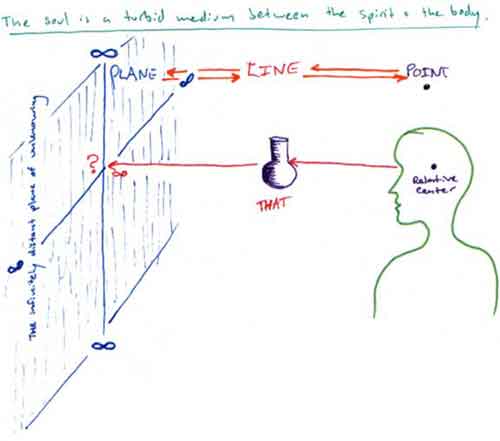 The soul is a turbid medium between the spirit & the body.
∞
PLANE
LINE
POINT
∞
?
∞
THAT
Relative
Center
∞
∞
The infinitely distant plane of unknowing